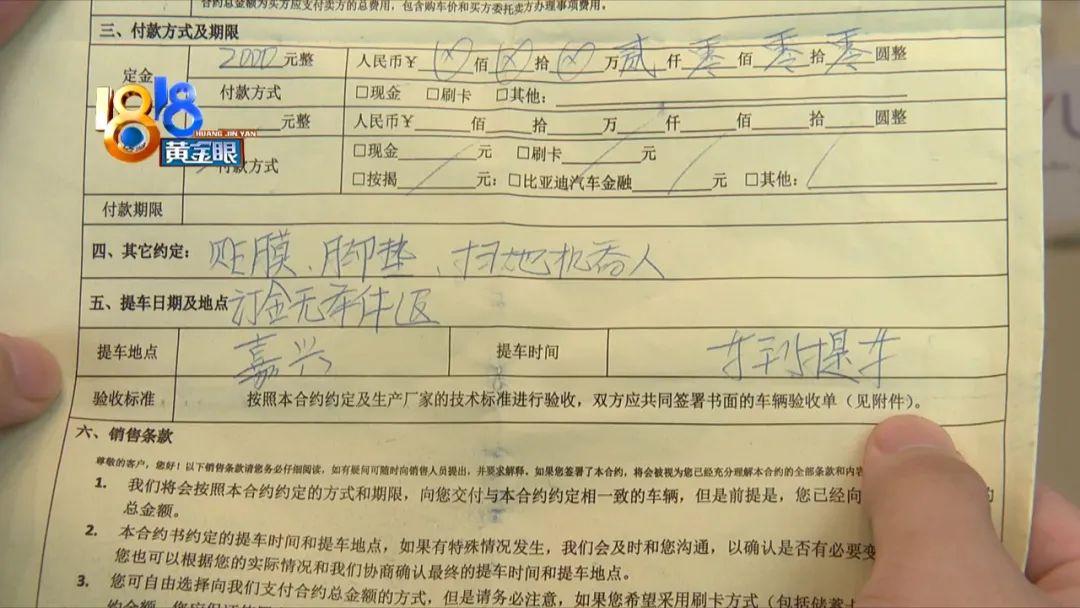 合约总金额为买方应支付卖方的总费用，包含购车价和买方委托卖方办理事项费用。
三、付款方式及期限
定金 2000元整 人民币￥ⓧ佰ⓧ拾ⓧ万贰仟零佰零拾零圆整
付款方式 □现金 □刷卡 □其他：
元整 人民币￥ 佰 拾 万 仟 佰 拾 圆整
付款方式 □现金 元 □刷卡 元
□按揭 元：□比亚迪汽车金融 元 □其他：
付款期限
四、其它约定：贴膜、脚垫、扫地机器人
五、提车日期及地点 订金无条件退
提车地点 嘉兴 提车时间 车到提车
验收标准 按照本合约约定及生产厂家的技术标准进行验收，双方应共同签署书面的车辆验收单（见附件）。
六、销售条款
尊敬的客户，您好！以下销售条款请您务必仔细阅读，如有疑问可随时向销售人员提出，并要求解释。如果您签署了本合约，将会被视为您已经充分理解本合约的全部条款和内容
1. 我们将会按照本合约约定的方式和期限，向您交付与本合约约定相一致的车辆，但是前提是，您已经向
总金额。
2. 本合约书约定的提车时间和提车地点，如果有特殊情况发生，我们会及时和您沟通，以确认是否有必要变
您也可以根据您的实际情况和我们协商确认最终的提车时间和提车地点。
3. 您可自由选择向我们支付合约总金额的方式，但是请务必注意，如果您希望采用刷卡方式（包括储蓄卡
1818
HUANG JIN YAN
黄金眼